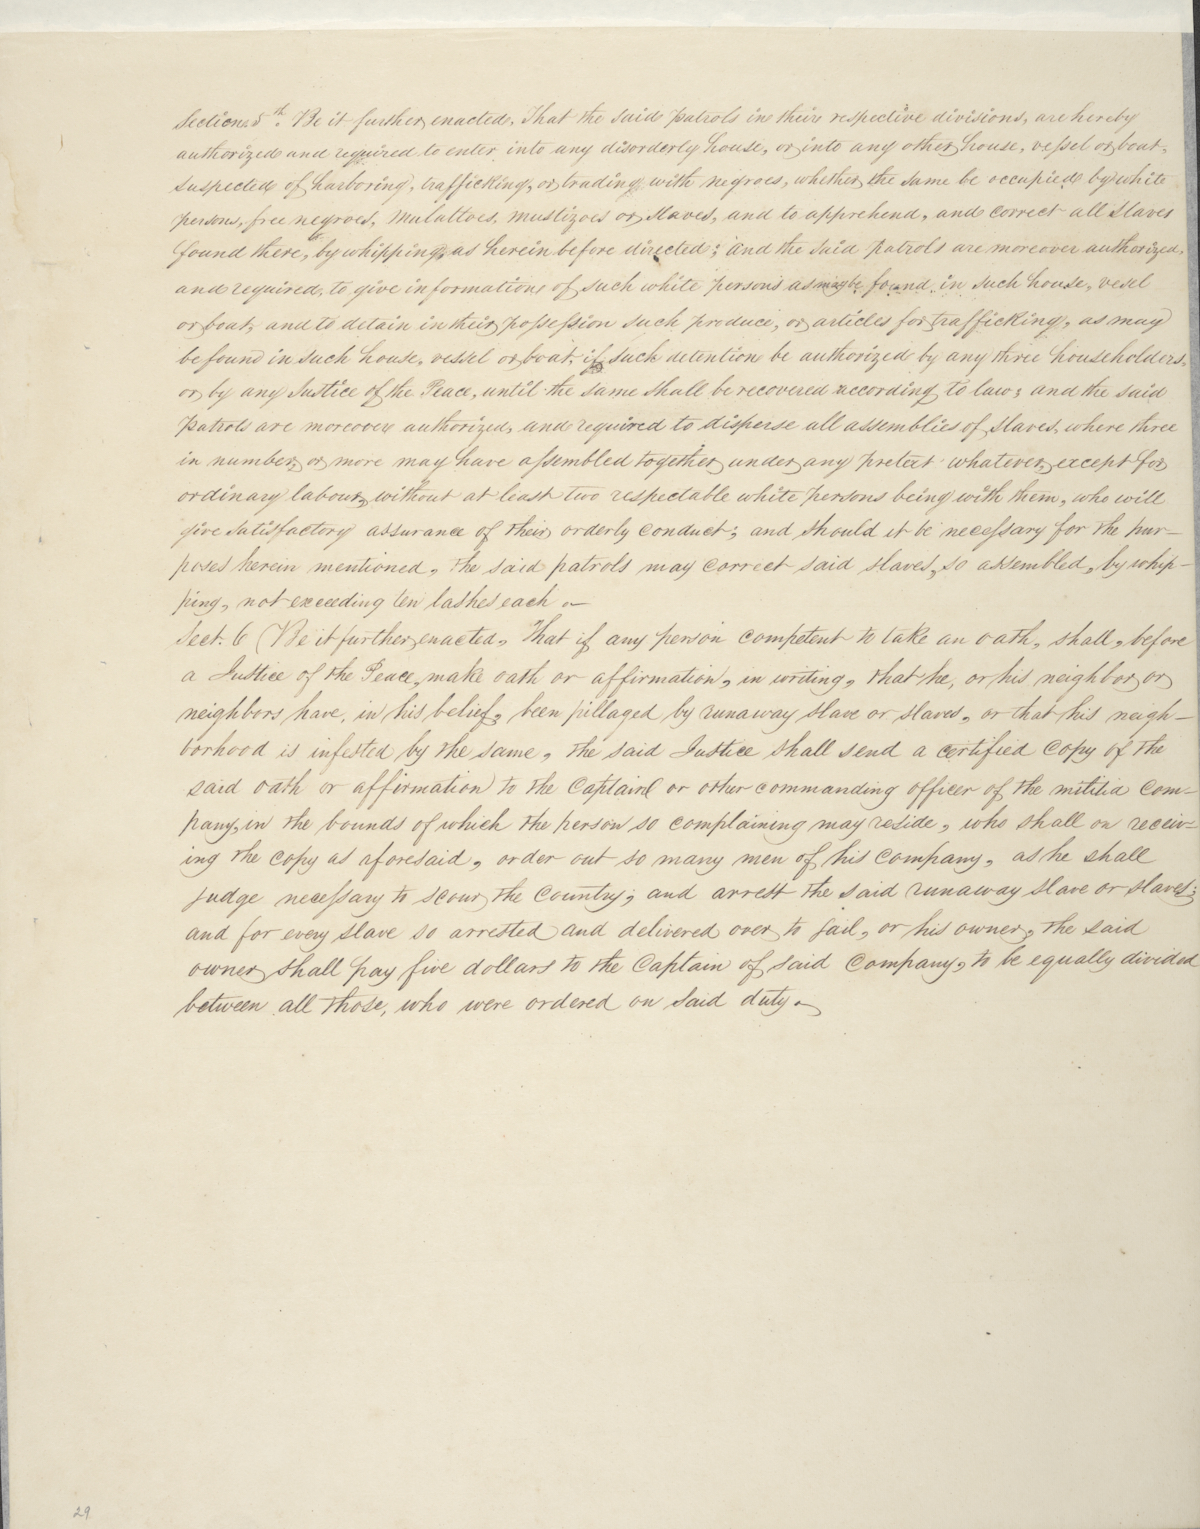 Section 5th. Be it further enacted, That the said patrols in their respective divisions, are hereby
authorized and required to enter into any disorderly house, or into any other house, vessel or boat,
suspected of harboring, trafficking, or trading with negroes, whether the same be occupied by white
persons, free negroes, mulattoes, mustizoes or slaves, and to apprehend, and correct all slaves
found there, by whipping, as herein before directed; and the said patrols are moreover authorized,
and required, to give information of such white persons as may be found in such house, vesel
or boat, and to detain in their possession such produce, or articles for trafficking, as may
be found in such house, vessel or boat, if such detention be authorized by any three householders,
or by any Justice of the Peace, until the same shall be recovered according to law; and the said
patrols are moreover authorized, and required to disperse all assemblies of slaves, where three
in number, or more may have assembled together under any pretext whatever, except for
ordinary labour, without at least two respectable white persons being with them, who will
give satisfactory assurance of their orderly conduct; and should it be necessary for the pur-
poses herein mentioned, the said patrols may correct said slaves, so assembled, by whip-
ping, not exceeding ten lashes each
Sect. 6 Be it further enacted, That if any person competent to take an oath, shall, before
a Justice of the Peace, make oath or affirmation, in writing, that he, or his neighbor or
neighbors have, in his belief, been pillaged by runaway slave or slaves, or that his neigh-
borhood is infested by the same, the said Justice shall send a certified copy of the
said oath or affirmation to the Captain or other commanding officer of the militia com-
pany, in the bounds of which the person so complaining may reside, who shall on receiv-
ing the copy as aforesaid, order out so many men of his company, as he shall
judge necessary to scour the Country; and arrest the said runaway slave or slaves;
and for every slave so arrested and delivered over to jail, or his owner, the said
owner shall pay five dollars to the Captain of said Company, to be equally divided
between all those, who were ordered on said duty.
29